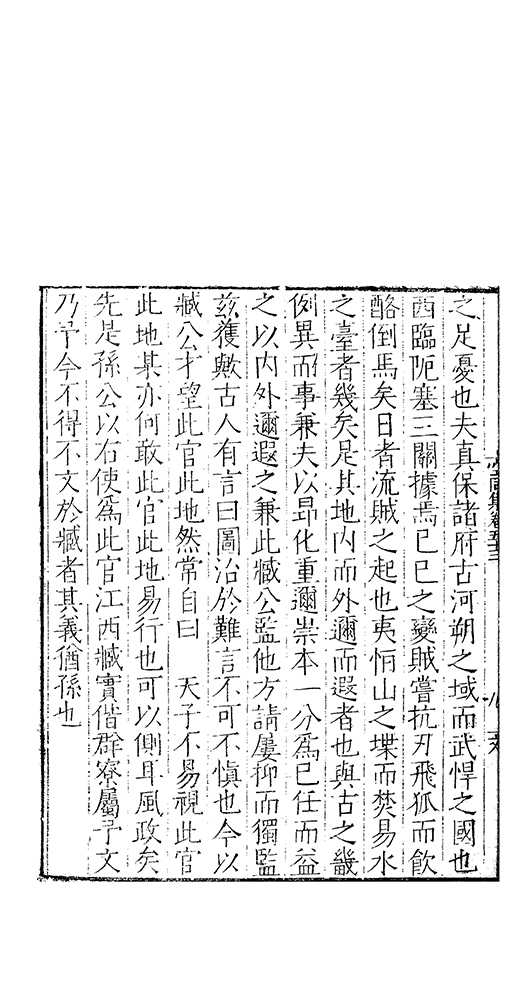 之足憂也夫真保諸府古河朔之域而武悍之國也
西臨阨塞三關據焉己巳之變賊嘗抗刃飛狐而飲
酪倒馬矣日者流賊之起也夷恆山之堞而焚易水
之臺者幾矣是其地内而外邇而遐者也與古之畿
例異而事兼夫以昻化重邇崇本一分爲已任而益
之以内外邇遐之兼此臧公監他方請屢抑而獨監
兹獲歟古人有言曰圖治於難言不可不慎也今以
臧公才望此官此地然常自曰　天子不易視此官
此地某亦何敢此官此地易行也可以側耳風政矣
先是孫公以右使爲此官江西臧實偕群寮屬予文
乃予今不得不文於臧者其義猶孫也
集卷五十三
八